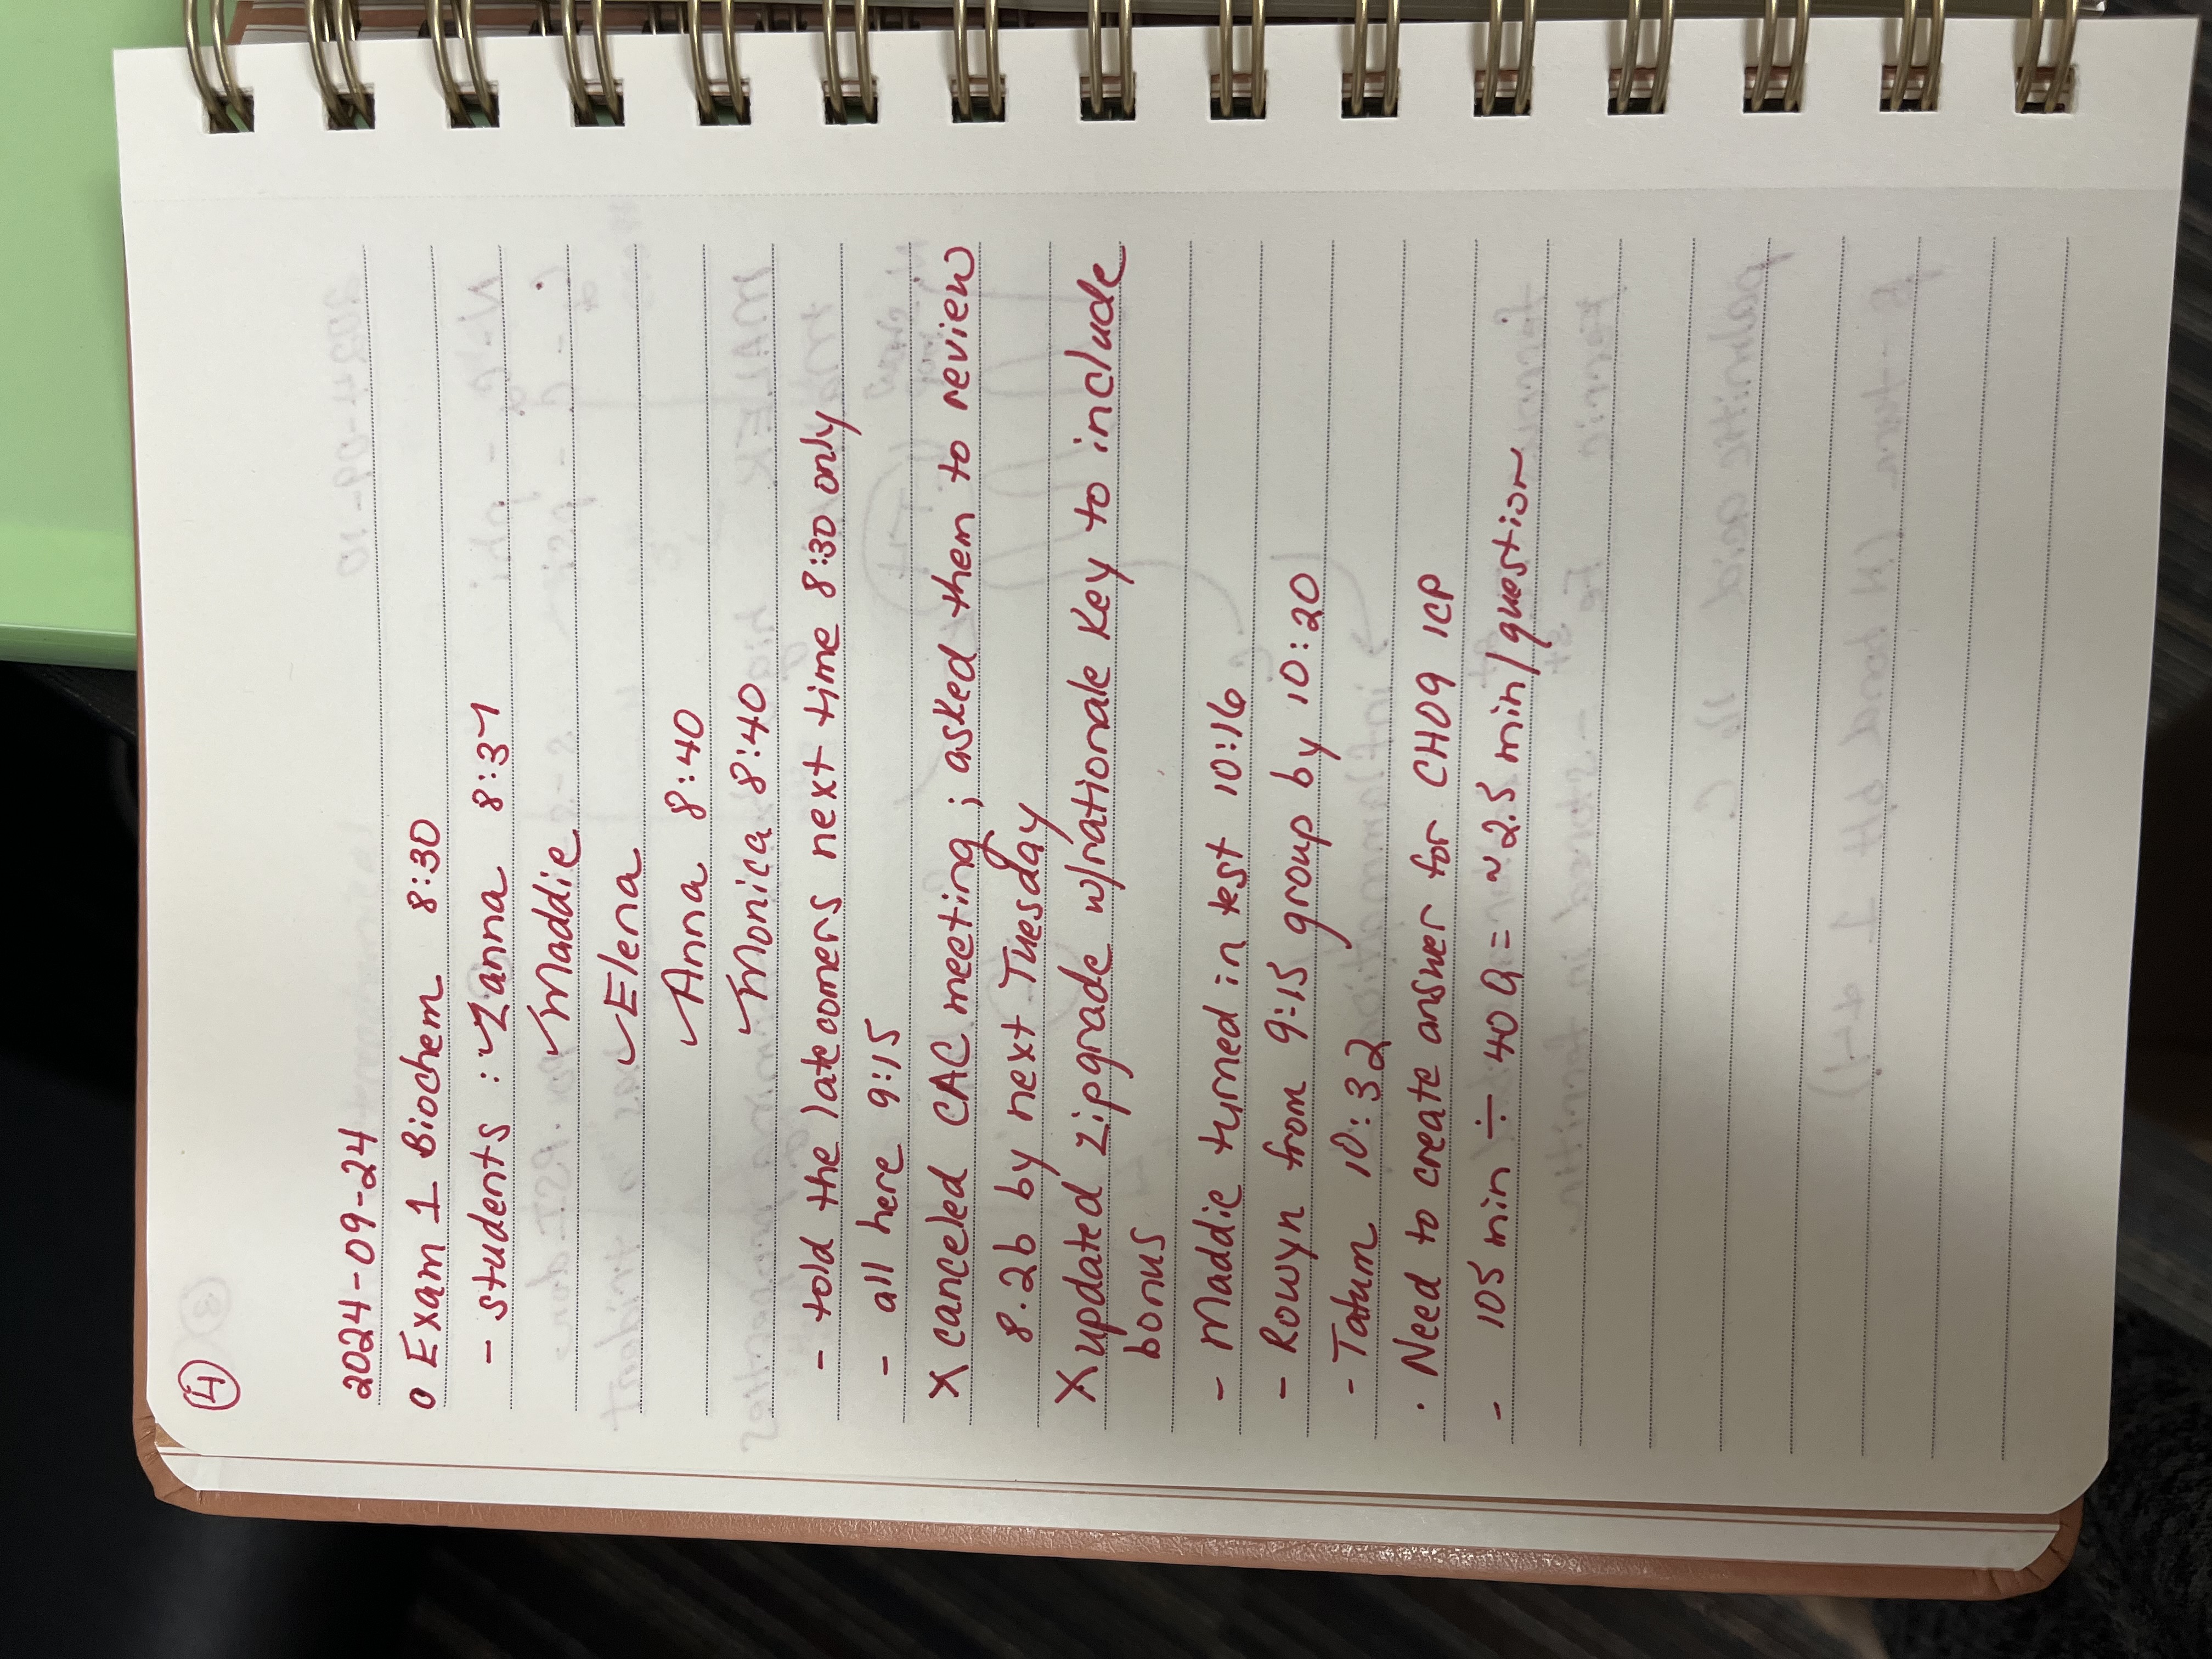 4
2024-09-24
o Exam 1 Biochem 8:30
- students : ✓Zanna 8:37
✓Maddie
✓Elena
✓Anna 8:40
✓Monica 8:40
- told the latecomers next time 8:30 only
- all here 9:15
X canceled CAC meeting ; asked them to review
8.2b by next Tuesday
X updated zipgrade w/rationale key to include
bonus
- Maddie turned in test 10:16
- Rowyn from 9:15 group by 10:20
- Tatum 10:32
· Need to create answer for CH09 ICP
- 105 min ÷ 40 Q = ~2.5 min/question